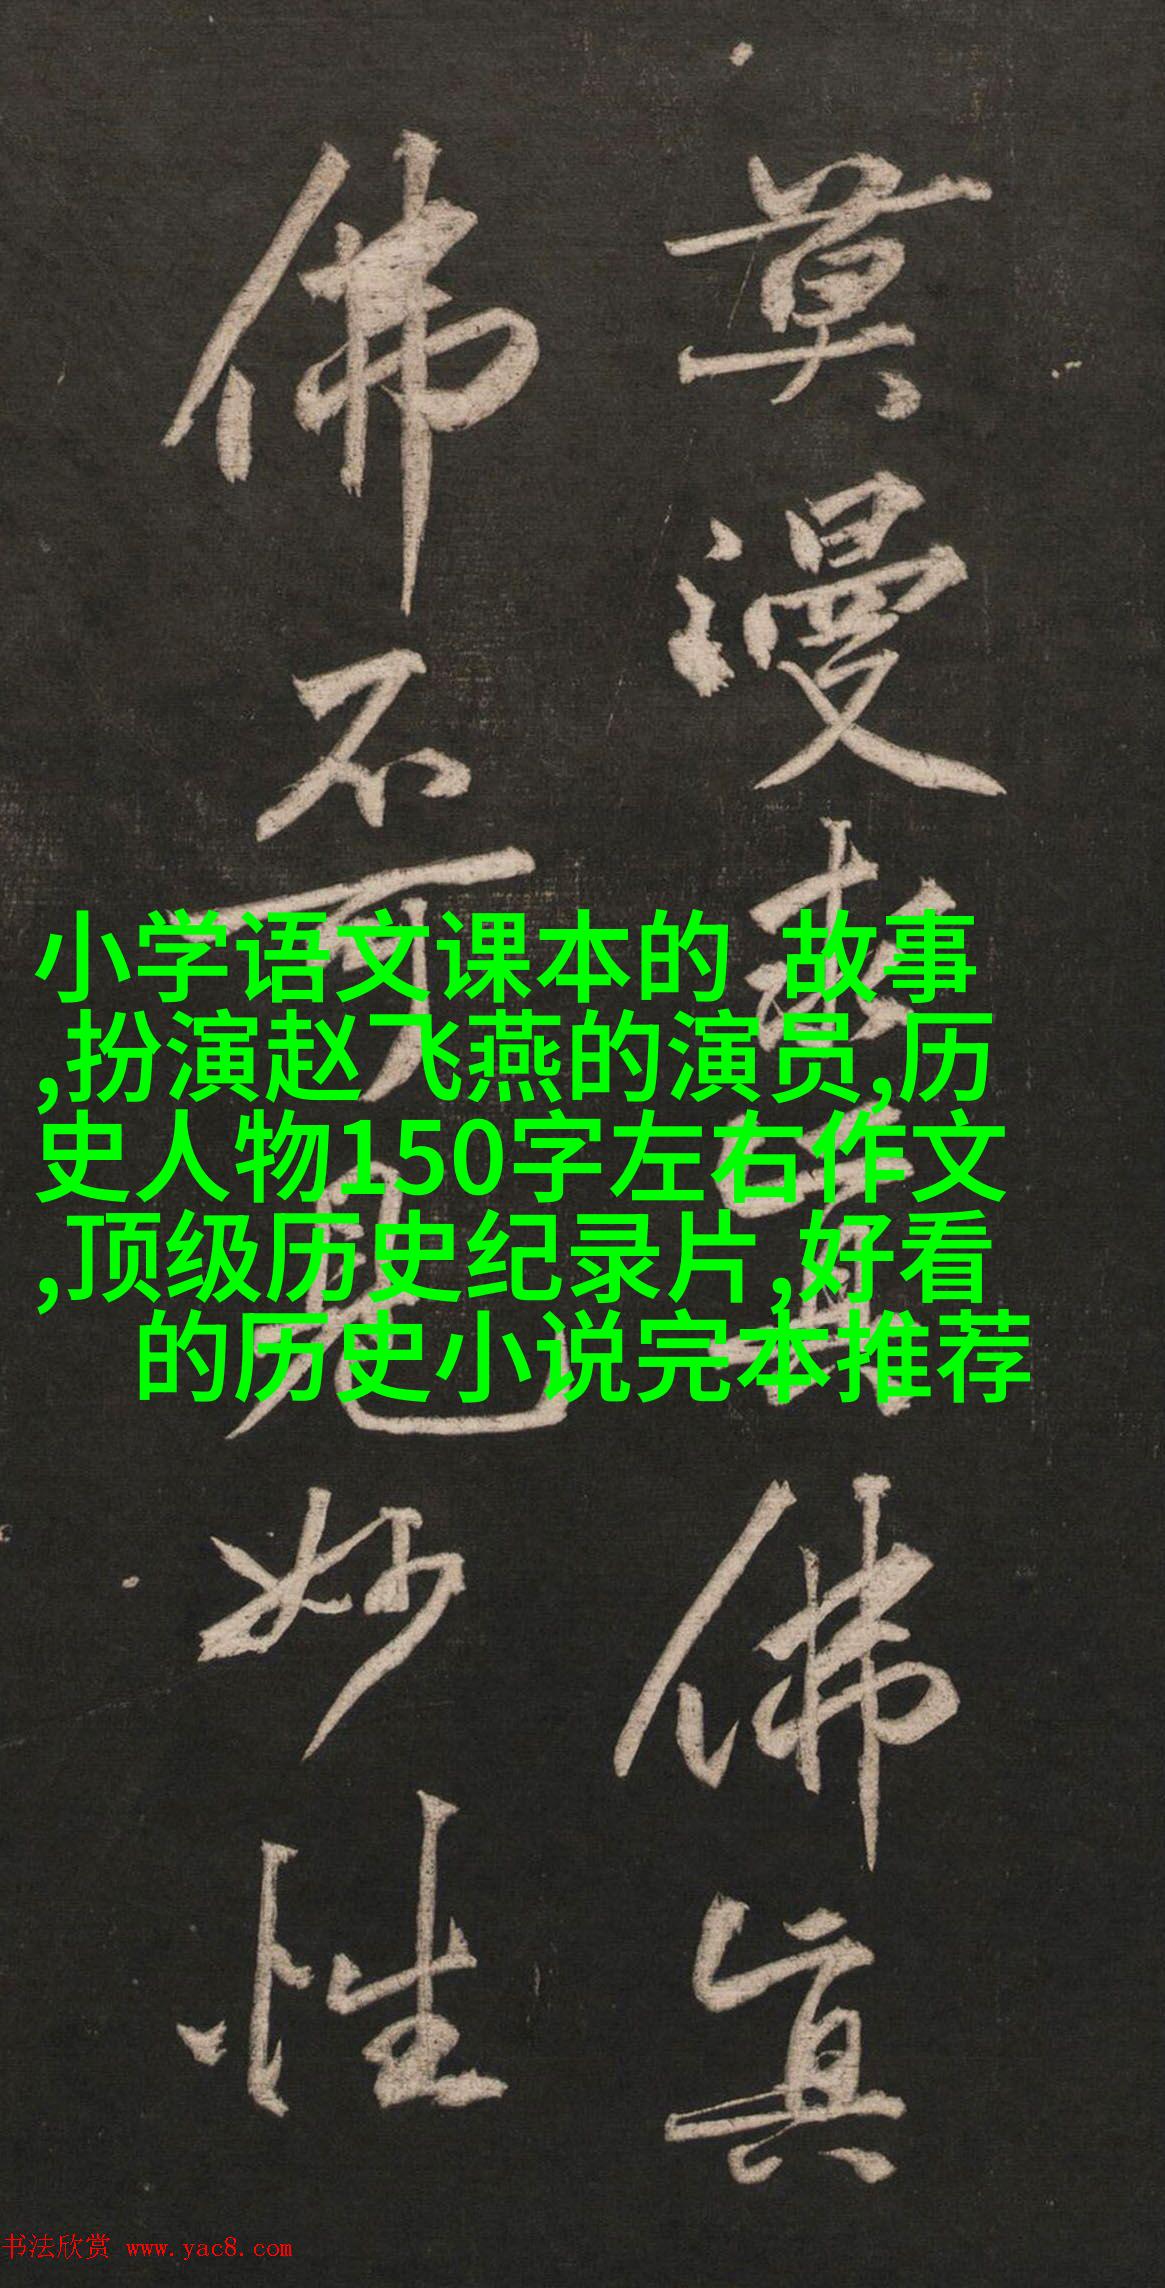 莫漫求真佛真
佛不可見妙性
小学语文课本的 故事
,扮演赵飞燕的演员,历
史人物150字左右作文
,顶级历史纪录片,好看
的历史小说完本推荐
书法欣赏 www.yac8.com